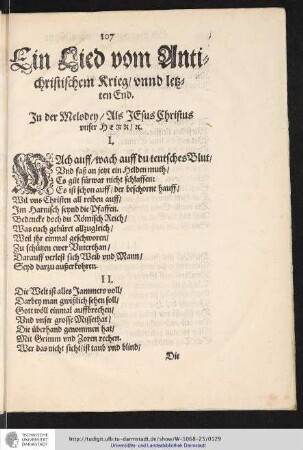 107
Ein Lied vom Anti-
christischem Krieg/ vnnd letz-
ten End.
In der Melodey/ Als JEsus Christus
vnser HERR/ ꝛc.
I.
WAch auff/ wach auff du teutsches Blut/
Vnd faß an jetzt ein Heldenmuth/
Es gilt fürwar nicht schlaffen:
Es ist schon auff/ der beschorne hauff/
Wil vns Christen all reiben auff/
Im Harnisch seynd die Pfaffen.
Bedencke doch du Römisch Reich/
Was euch gebürt allzugleich/
Weil ihr einmal geschworen/
Zu schützen ewer Vnterthan/
Darauff verlest sich Weib vnd Mann/
Seyd darzu außerkohren.
II.
Die Welt ist alles Jammers voll/
Darbey man gwißlich sehen soll/
Gott wöll einmal auffbrechen/
Vnd vnser grosse Missethat/
Die überhand genommen hat/
Mit Grimm vnd Zoren rechen.
Wer das nicht sicht/ ist taub vnd blind/
Die
TECHNISCHE
UNIVERSITÄT
DARMSTADT
http://tudigit.ulb.tu-darmstadt.de/show/W-1068-25/0129
Universitäts- und Landesbibliothek Darmstadt